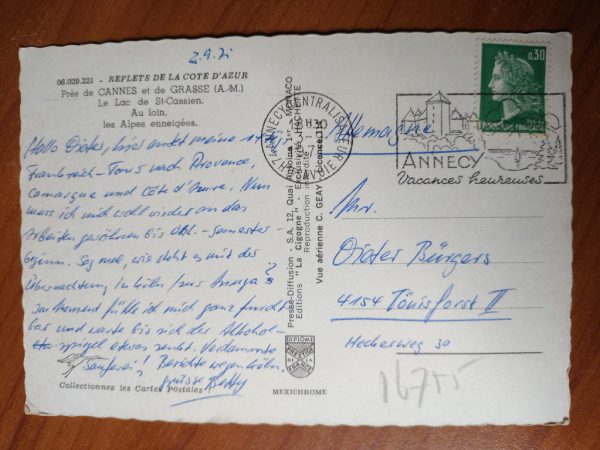 2.9.71
06.029.221 - REFLETS DE LA COTE D'AZUR
Près de CANNES et de GRASSE (A.-M.)
Le Lac de St-Cassien.
Au loin,
les Alpes enneigées.
Hallo Dieter, hier endet meine
Frankreich-Tour nach Provence,
Camargue und Côte d'Azure. Nun
muss ich mich wohl wieder an das
Arbeiten gewöhnen bis Okt.-Semester-
beginn. Sag mal, wie steht es mit der
Übernachtung in Köln zur Anuga?
Im Moment fühle ich mich ganz furcht
bar und warte bis sich der Alkohol-
spiegel etwas senkt. Verdammte
Sauferei! Berichte wegen Köln.
Grüsse
Collectionnez les Cartes Postales
Presse-Diffusion - S.A. 12, Quai Antoine 1er - MONACO
Editions "La Cigogne" - Exclusivité HACHETTE
Reproduction interdite
Vue aérienne C. GEAY
DIPLOME
PRESTIGE
DE LA
FRANCE
MEXICHROME
ANNECY CENTRALISATEUR
0,30
REPUBLIQUE FRANÇAISE
ANNECY
Vacances heureuses
Allemagne
Hr.
Dieter Bürgers
4154 Tönisforst II
Heckerweg 30
16755